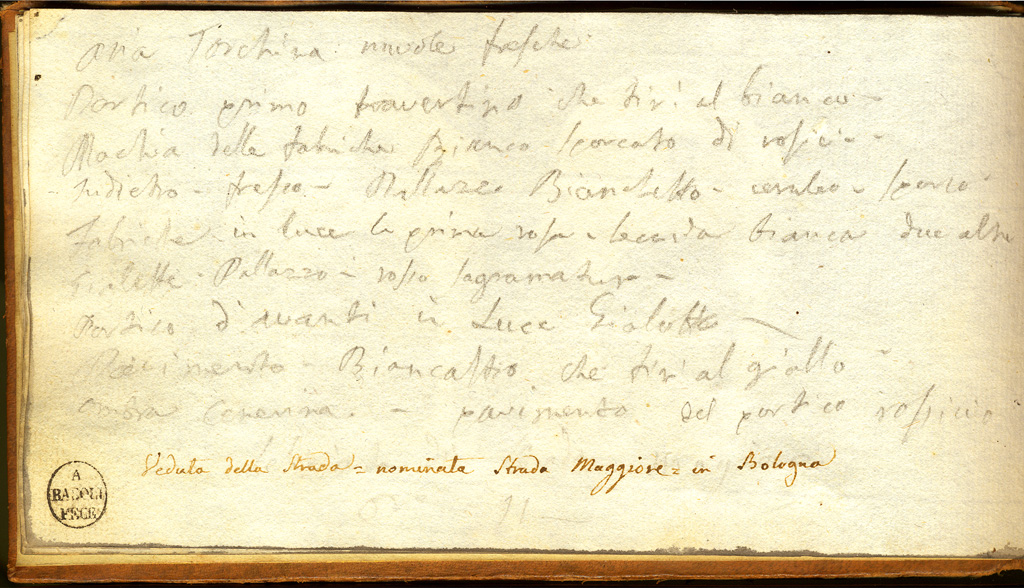 Aria Torchina nuvole fresche
Portico primo travertino che tiri al bianco -
Machia delle fabriche Bianco sporcato di rosici -
Indietro - fresco - Pallazzo Bianchetto - ceruleo - sporco
Fabriche in luce la prima rosa - seconda bianca due altre
Gialette - Pallazzo - rosso sagramatura -
Portico d'avanti in Luce Gialetto -
Pavimento - Biancastro che tiri al giallo
ombra Cenerina. - pavimento del portico rossicio
Veduta della Strada = nominata Strada Maggiore = in Bologna
A
BASOLI
FECE
11